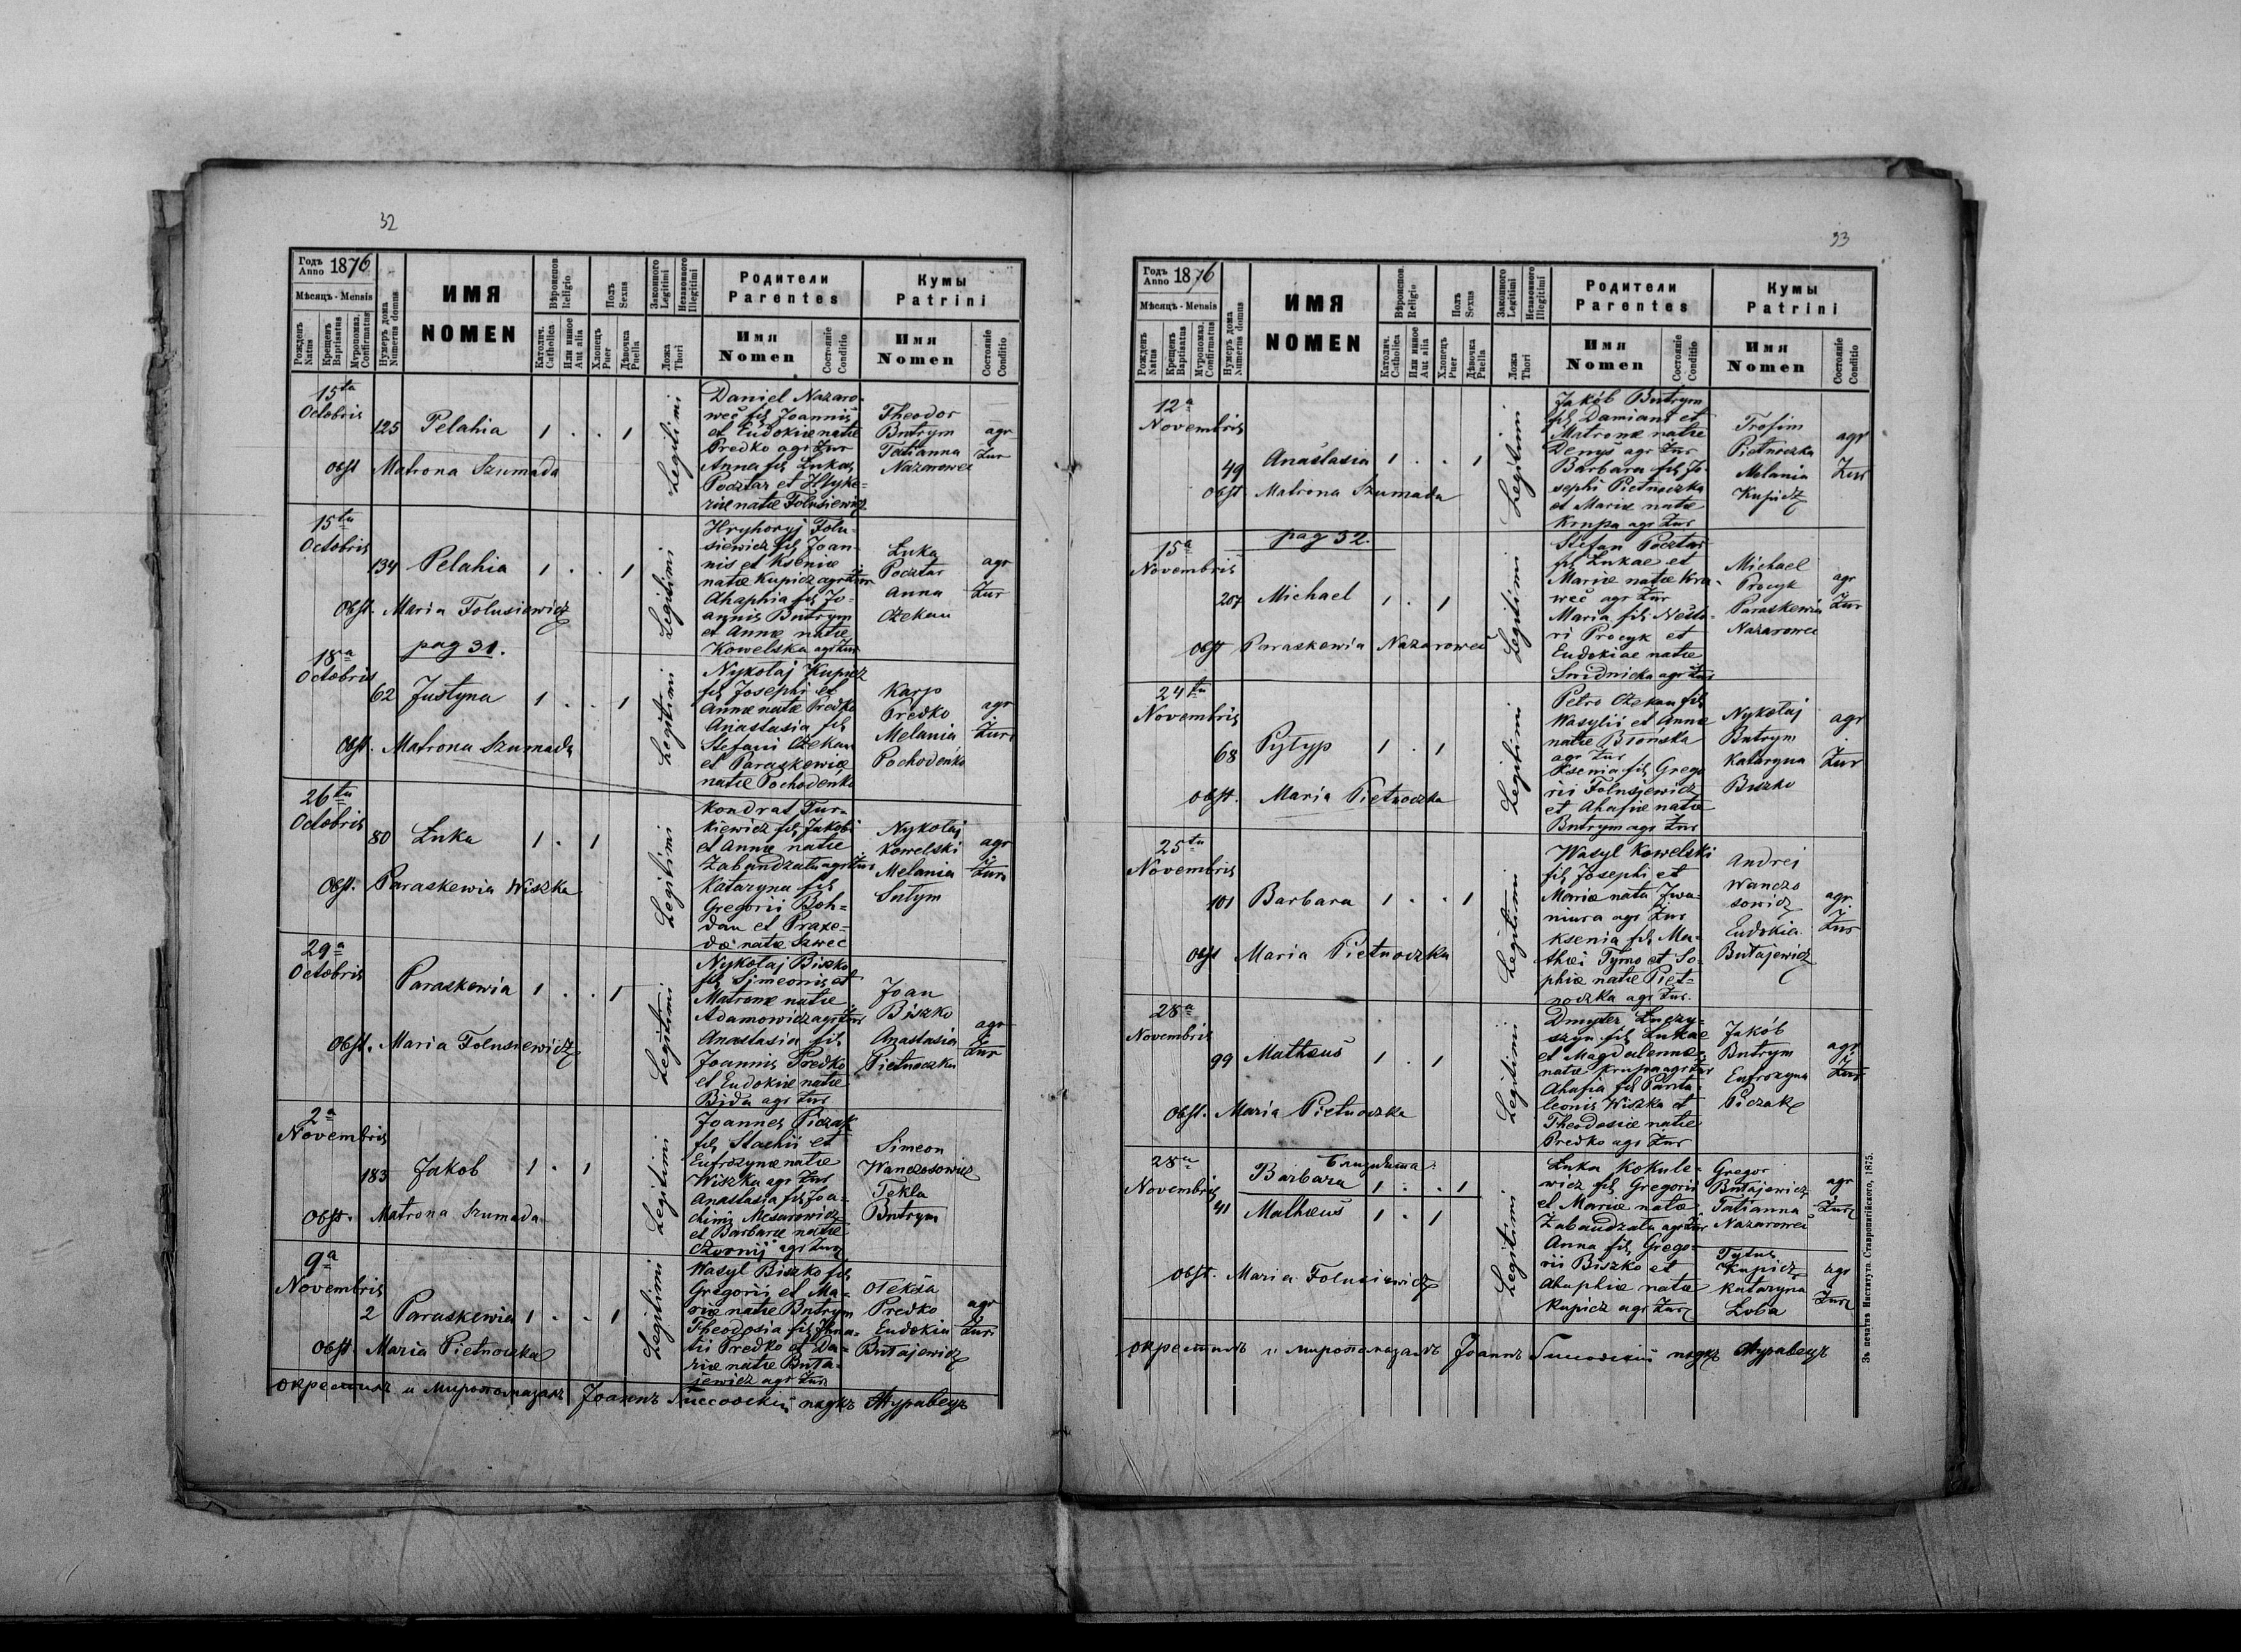 32
Годъ Anno 1876
Мѣсяцъ - Mensis
Рожденъ Natus
Крещенъ Baptisatus
Муропомаз. Confirmatus
Нумеръ дома Numerus domus
ИМЯ
NOMEN
Вѣроисповѣд. Religio
Католич. Catholica
Или иное Aut alia
Полъ Sexus
Хлопецъ Puer
Дѣвочка Puella
Законного Legitimi
Незаконного Illegitimi
Ложа Thori
Родители
Parentes
Имя
Nomen
Состояніе Conditio
Кумы
Patrini
Имя
Nomen
Состояніе Conditio
15ta
Octobris
125 Pelahia 1 . . 1
Obst Matrona Szumada
Legitimi
Daniel Nazaro-
weć fil Joannis
et Eudokiæ natæ
Predko agr Żur
Anna fil Lukæ
Pocztar et Hlyke-
riæ natæ Folusiewicz
Theodor
Butrym
Tatianna
Nazarowec
agr
Żur
15ta
Octobris
134 Pelahia 1 . . 1
Obst. Maria Folusiewicz
Legitimi
Hryhoryj Folu-
siewicz fil Joan-
nis et Kseniæ
natæ Kupicz agr Żur
Ahaphia fil Jo-
annis Butrym
et Annæ natæ
Kowelska agr Żur
Łuka
Pocztar
Anna
Czekan
agr
Żur
pag 31.
18a
Octobris
62 Justyna 1 . . 1
Obst. Matrona Szumada
Legitimi
Nykołaj Kupicz
fil Josephi et
Annæ natæ Predko
Anastasia fil
Stefani Czekan
et Paraskewiæ
natæ Pochodeńko
Karpo
Predko
Melania
Pochodeńko
agr
Żur
26ta
Octobris
80 Łuka 1 . 1
Obst. Paraskewia Wiszka
Legitimi
Kondrat Tur-
kiewicz fil Jakobi
et Annæ natæ
Zabandzata agr Żur
Kataryna fil
Gregorii Boh-
dan et Praxe-
dæ natæ Szwec
Nykołaj
Kowelski
Melania
agr
Żur
29a
Octobris
Paraskewia 1 . . 1
Obst. Maria Folusiewicz
Legitimi
Nykołaj Biszko
fil Simeonis et
Matronæ natæ
Adamowicz agr Żur
Anastasia fil
Joannis Predko
et Eudokiæ natæ
Bida agr Żur
Joan
Biszko
Anastasia
Pietnoczka
agr
Żur
2a
Novembris
183 Jakob 1 . 1
Obst. Matrona Szumada
Legitimi
Joannes Piczak
fil Stachii et
Eufrozynæ natæ
Wiszka agr Żur
Anastasia fil Joa-
chimi Mesarowicz
et Barbaræ natæ
Czornij agr Żur
Simeon
Wanczosowicz
Tekla
Butrym
9a
Novembris
2 Paraskewia 1 . . 1
Obst. Maria Pietnoczka
Legitimi
Wasyl Biszko fil
Gregorii et Ma-
riæ natæ Butrym
Theodosia fil Ihna-
tii Predko et Da-
riæ natæ Buta-
jewicz agr Żur
Oleksa
Predko
Eudokia
Butajewicz
agr
Żur
окрестилъ и миропомазалъ Іоаннъ парохъ Журавецъ
33
Годъ Anno 1876
Мѣсяцъ - Mensis
Рожденъ Natus
Крещенъ Baptisatus
Муропомаз. Confirmatus
Нумеръ дома Numerus domus
ИМЯ
NOMEN
Вѣроисповѣд. Religio
Католич. Catholica
Или иное Aut alia
Полъ Sexus
Хлопецъ Puer
Дѣвочка Puella
Законного Legitimi
Незаконного Illegitimi
Ложа Thori
Родители
Parentes
Имя
Nomen
Состояніе Conditio
Кумы
Patrini
Имя
Nomen
Состояніе Conditio
12a
Novembris
49 Anastasia 1 . . 1
Obst Matrona Szumada
Legitimi
Jakób Butrym
fil Damiani et
Matronæ natæ
Denys agr Żur
Barbara fil Jo-
sephi Pietnoczka
et Mariæ natæ
Krupa agr Żur
Trofim
Pietnoczka
Melania
Kupicz
agr
Żur
pag 32.
15a
Novembris
207 Michael 1 . 1
Obst Paraskewia Nazaroweć
Legitimi
Stefan Pocztar
fil Lukae et
Mariæ natæ Kra-
weć agr Żur
Maria fil Nesto-
ri Procyk et
Eudokiae natæ
Swidnicka agr Żur
Michael
Procyk
Paraskewia
Nazarowec
agr
Żur
24ta
Novembris
68 Pyłyp 1 . 1
Obst. Maria Pietnoczka
Legitimi
Petro Czekan fil
Wasylii et Annæ
natæ Błońska
agr Żur
Ksenia fil Grego
rii Folusiewicz
et Ahafiæ natæ
Butrym agr Żur
Nykołaj
Butrym
Kataryna
Biszko
agr
Żur
25ta
Novembris
101 Barbara 1 . . 1
Obst Maria Pietnoczka
Legitimi
Wasyl Kowelski
fil Josephi et
Mariæ nata Iwa-
niura agr Żur
Ksenia fil Ma-
thæi Tymo et So-
phiæ natæ Piet-
noczka agr Żur.
Andrei
Wanczo
sowicz
Eudokia
Butajewicz
agr.
Żur
28a
Novembris
99 Mathæus 1 . 1
Obst. Maria Pietnoczka
Legitimi
Dmyter Łuczy-
szyn fil Lukae
et Magdalennæ
natæ Krupa agr Żur
Ahafia fil Panta-
leonis Wiszka et
Theodosiæ natæ
Predko agr Żur
Jakób
Butrym
Eufrozyna
Piczak
agr
Żur
28a
Novembris
41
Близнята:
Barbara 1 . . 1
Mathæus 1 . 1
Obst. Maria Folusiewicz
Legitimi
Łuka Kokule-
wicz fil Gregorii
et Mariæ natæ
Zabandzata agr Żur
Anna fil Grego-
rii Biszko et
Ahaphiæ natæ
Kupicz agr Żur
Gregor
Butajewicz
Tatianna
Nazaroweć
agr
Żur
Tytus
Kupicz
Kataryna
Łoba
agr
Żur
окрестилъ и миропомазалъ Іоаннъ парохъ Журавецъ
Зъ печатнѣ Института Ставропигійского, 1875.